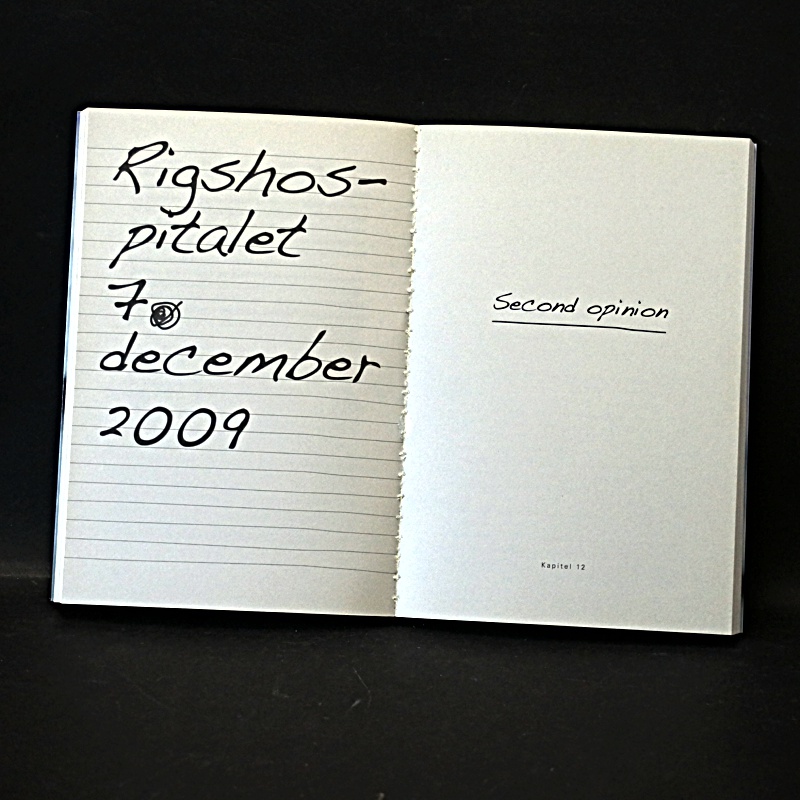 Rigshos-
pitalet
7.
december
2009
Second opinion
Kapitel 12